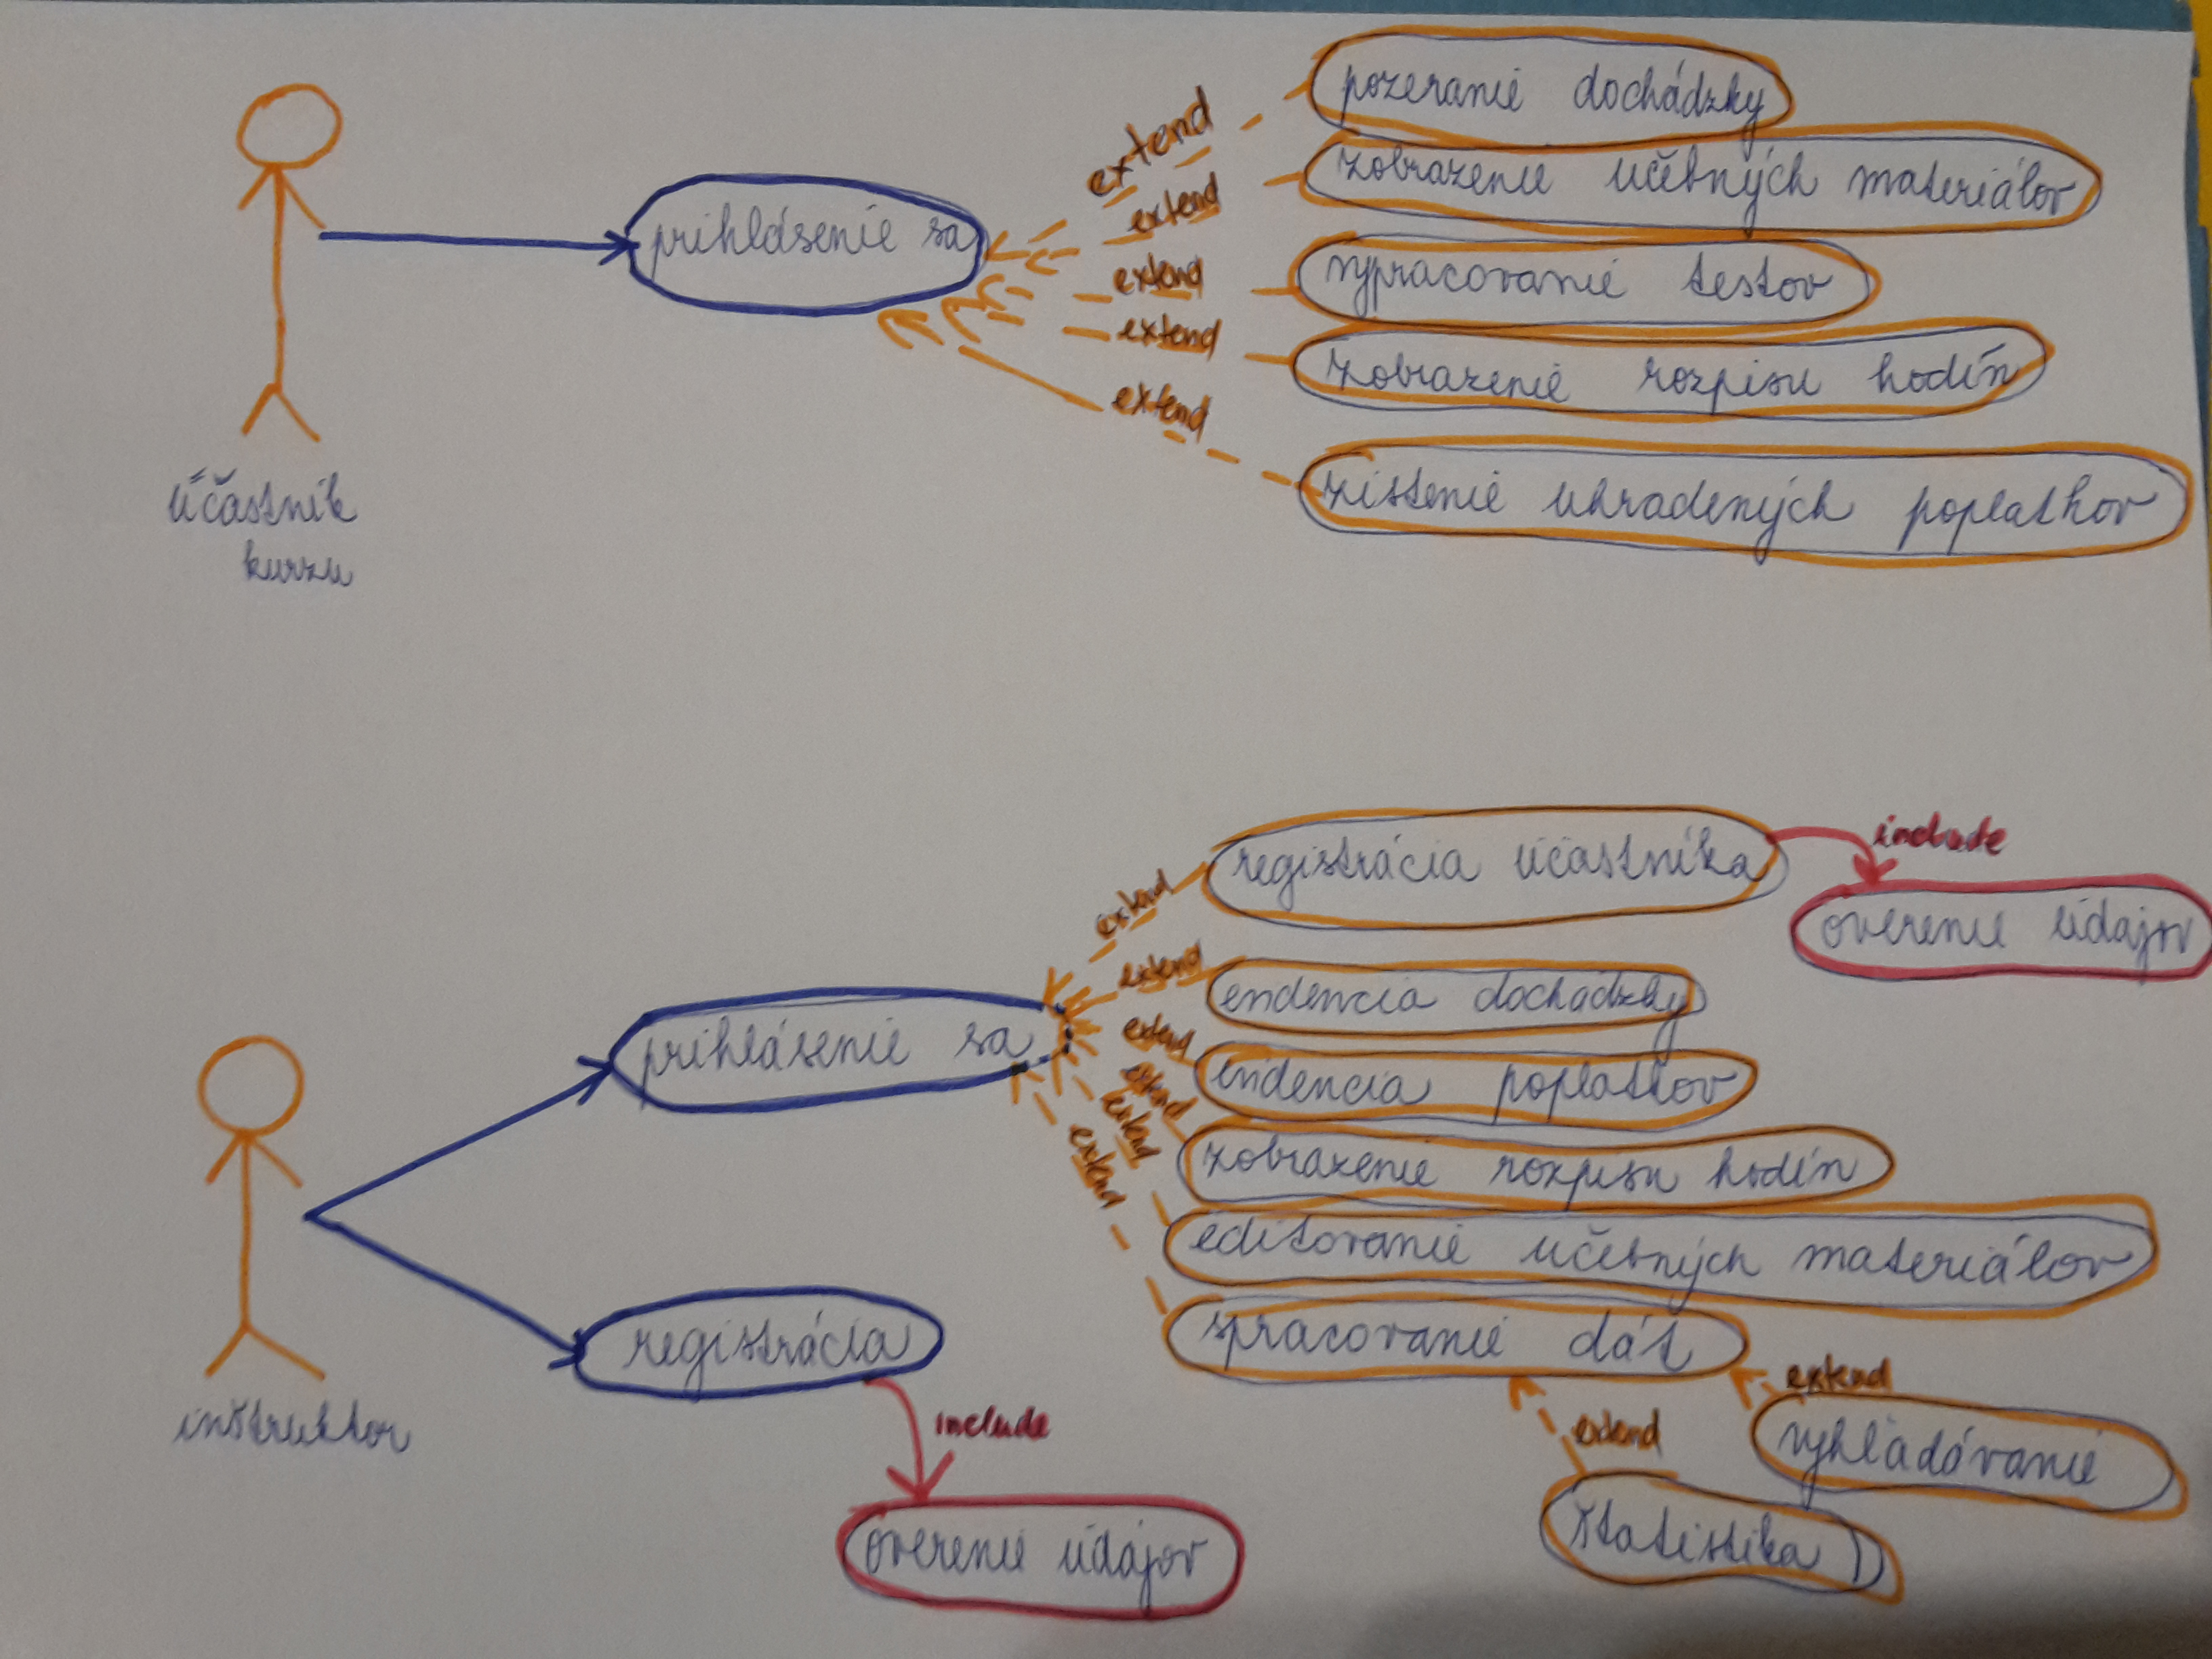 pozeranie dochádzky
extend
zobrazenie učebných materiálov
extend
prihlásenie sa
vypracovanie testov
extend
extend
zobrazenie rozpisu hodín
extend
zistenie uhradených poplatkov
účastník
kurzu
registrácia účastníka
include
extend
overenie údajov
extend
evidencia dochádzky
prihlásenie sa
extend
evidencia poplatkov
extend
extend
zobrazenie rozpisu hodín
extend
editovanie učebných materiálov
registrácia
spracovanie dát
extend
inštruktor
include
extend
vyhľadávanie
overenie údajov
štatistika